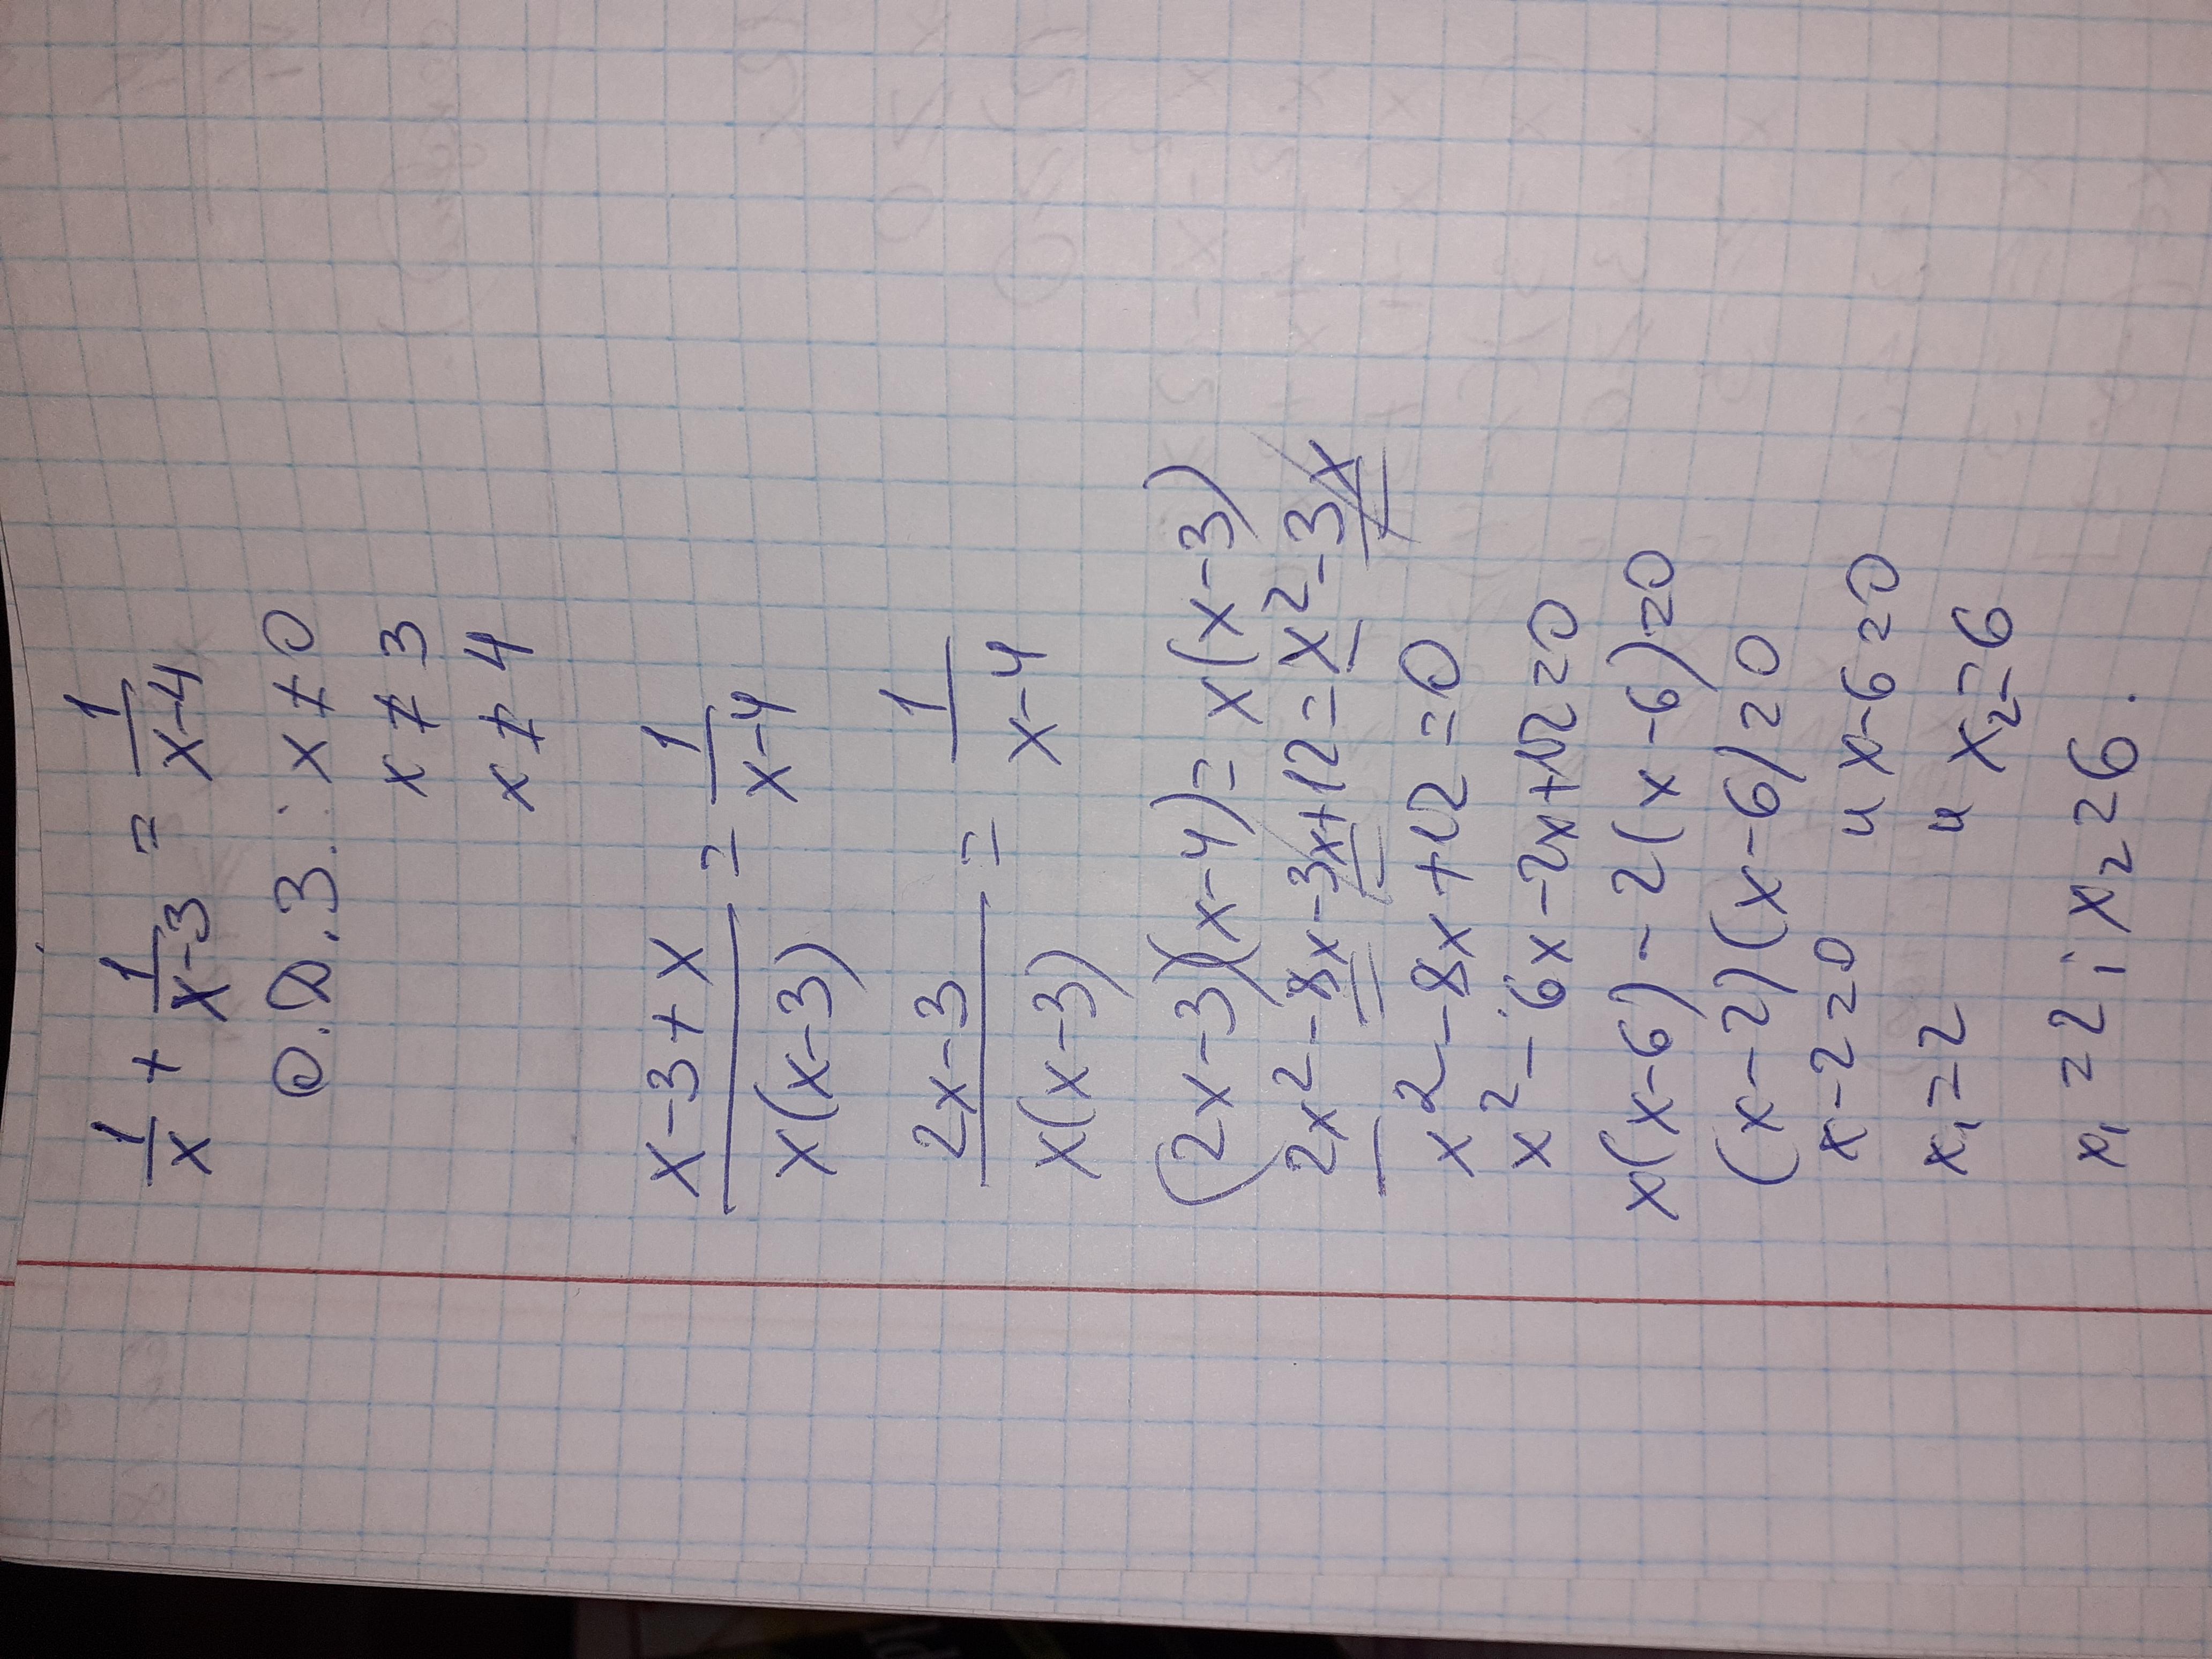 1/x + 1/(x-3) = 1/(x-4)
О.Д.З.: x ≠ 0
x ≠ 3
x ≠ 4
(x-3+x)/(x(x-3)) = 1/(x-4)
(2x-3)/(x(x-3)) = 1/(x-4)
(2x-3)(x-4) = x(x-3)
2x² - 8x - 3x + 12 = x² - 3x
x² - 8x + 12 = 0
x² - 6x - 2x + 12 = 0
x(x-6) - 2(x-6) = 0
(x-2)(x-6) = 0
x-2=0 и x-6=0
x₁=2 и x₂=6
x₁=2; x₂=6.